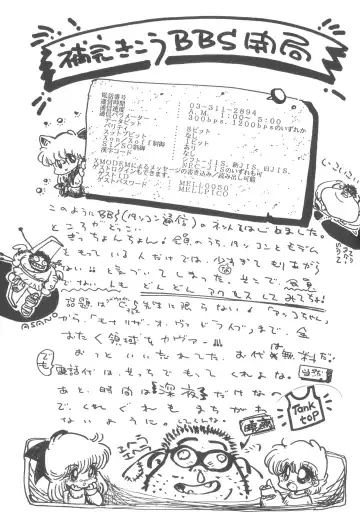 補完きこうBBS開局
電話番号 : 03-311-2894
運営時間 : A.M. 1:00～5:00
通信速度 : 300bps,1200bpsのいずれか
通信パラメーター
データビット : 8ビット
パリティ : なし
ストップビット : 1ビット
Xon/Xoff制御 : あり
SI/SO制御 : なし
漢字コード : シフトJIS、新JIS、旧JIS、
NEC-JISのいずれも可
XMODEMによるメッセージの書き込み／読み出し可能
ゲストログインもできます。
ゲストID : MELL0050
ゲストパスワード : MELLPTCT
このようにBBS(パソコン通信)のネットをはじめました。
ところがどっこい
ぎっちょんちょん！会員のうち、パソコンもモデム
をもっている人だけでは、少なすぎてもりあがら
ない!!と気づいてしまった。そこで、会員
でない人も どんどん アクセスしてみてちょ！
話題はC's先生に限らない！「アッコちゃん」
から、「モナリザ・オーヴァドライヴ」まで、全
おたく領域をカヴァー!!!
おっといいわすれてた。お代は無料だ!
でも 電話代は、そっちでもってくれよな。当然
あと、時間は深夜だけなの
で、くれぐれもまちがわ
ないように。
ASANO
Tank
top